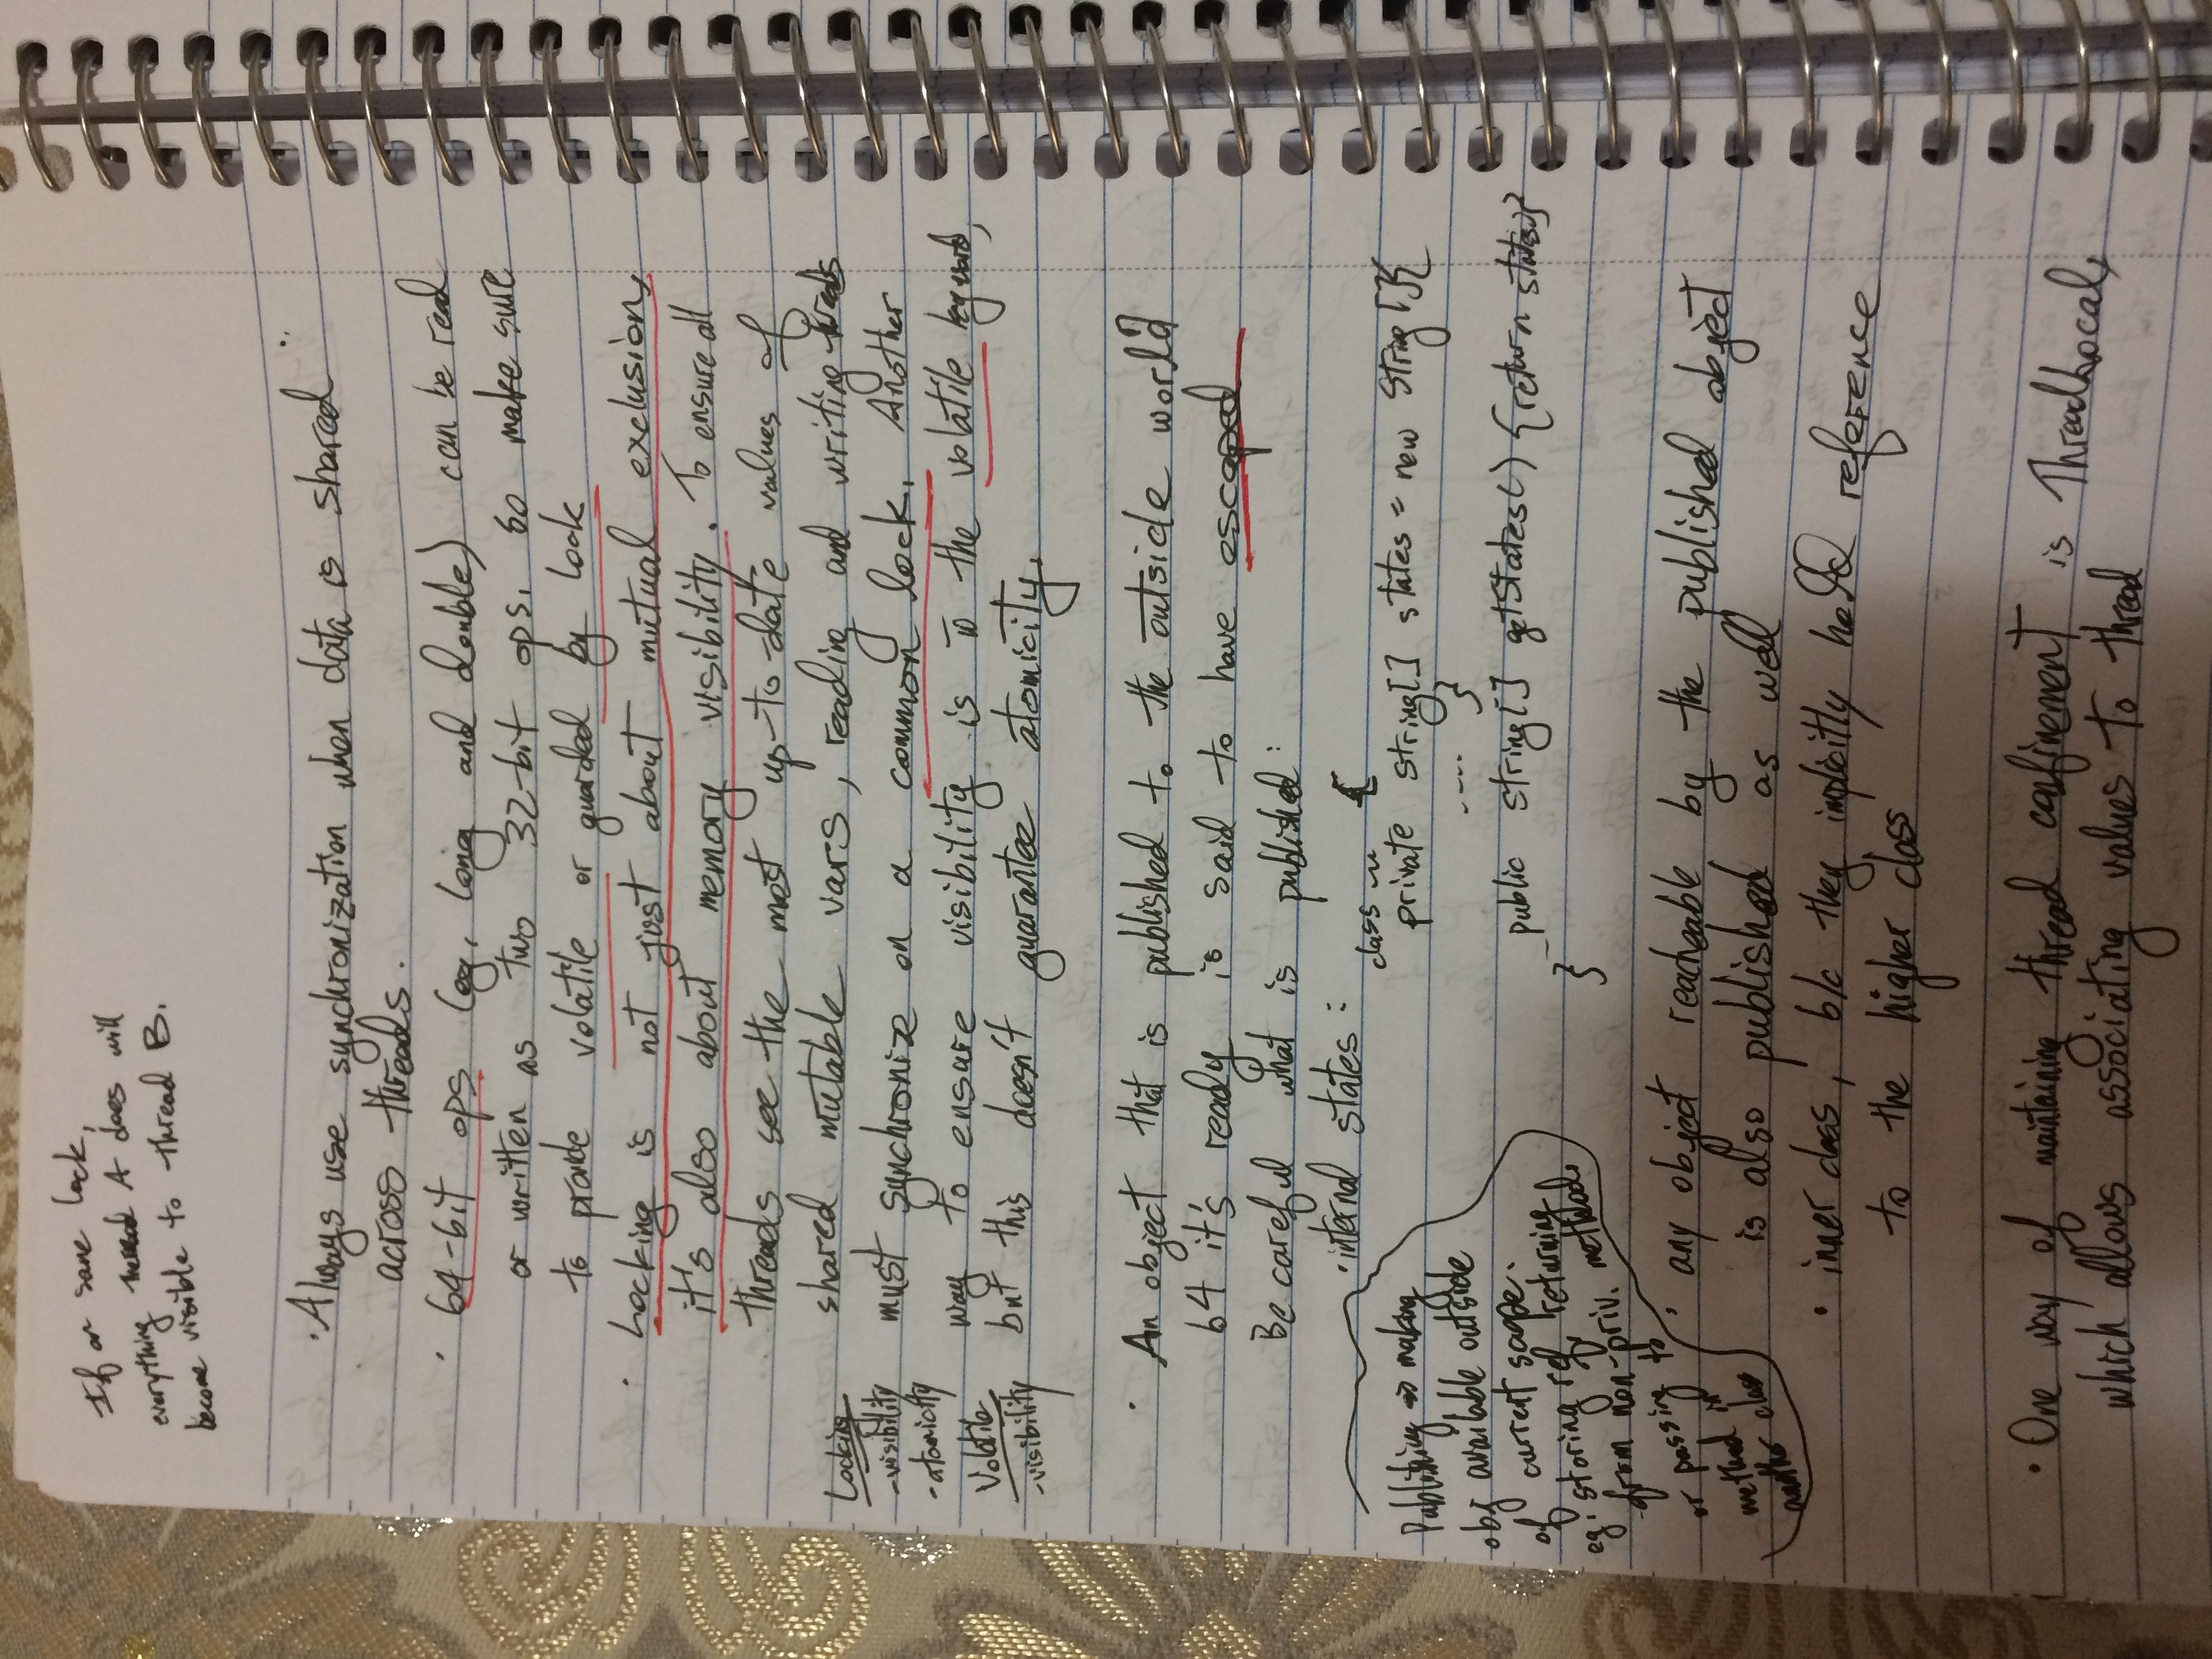 If on same lock,
everything thread A does will
become visible to thread B.
· Always use synchronization when data is shared
across threads.
· 64-bit ops (eg, long and double) can be read
or written as two 32-bit ops, so make sure
to provide volatile or guarded by lock
· Locking is not just about mutual exclusion,
it's also about memory visibility. To ensure all
threads see the most up-to-date values of
shared mutable vars, reading and writing threads
must synchronize on a common lock. Another
way to ensure visibility is w the volatile keyword,
but this doesn't guarantee atomicity.
Locking
-visibility
-atomicity
Volatile
-visibility
· An object that is published to the outside world
b4 it's ready is said to have escaped
Be careful what is published:
· internal states :
class ~ {
private String[] states = new String[]{
---- }
public String[] getStates() {return states;}
}
Publishing => making
obj available outside
of current scope.
eg: storing ref, returning
from non-priv. method,
or passing to
method in
another class
· any object reacheable by the published object
is also published as well
· inner class, b/c they implicitly hold reference
to the higher class
· One way of maintaining thread confinement is ThreadLocal,
which allows associating values to thread